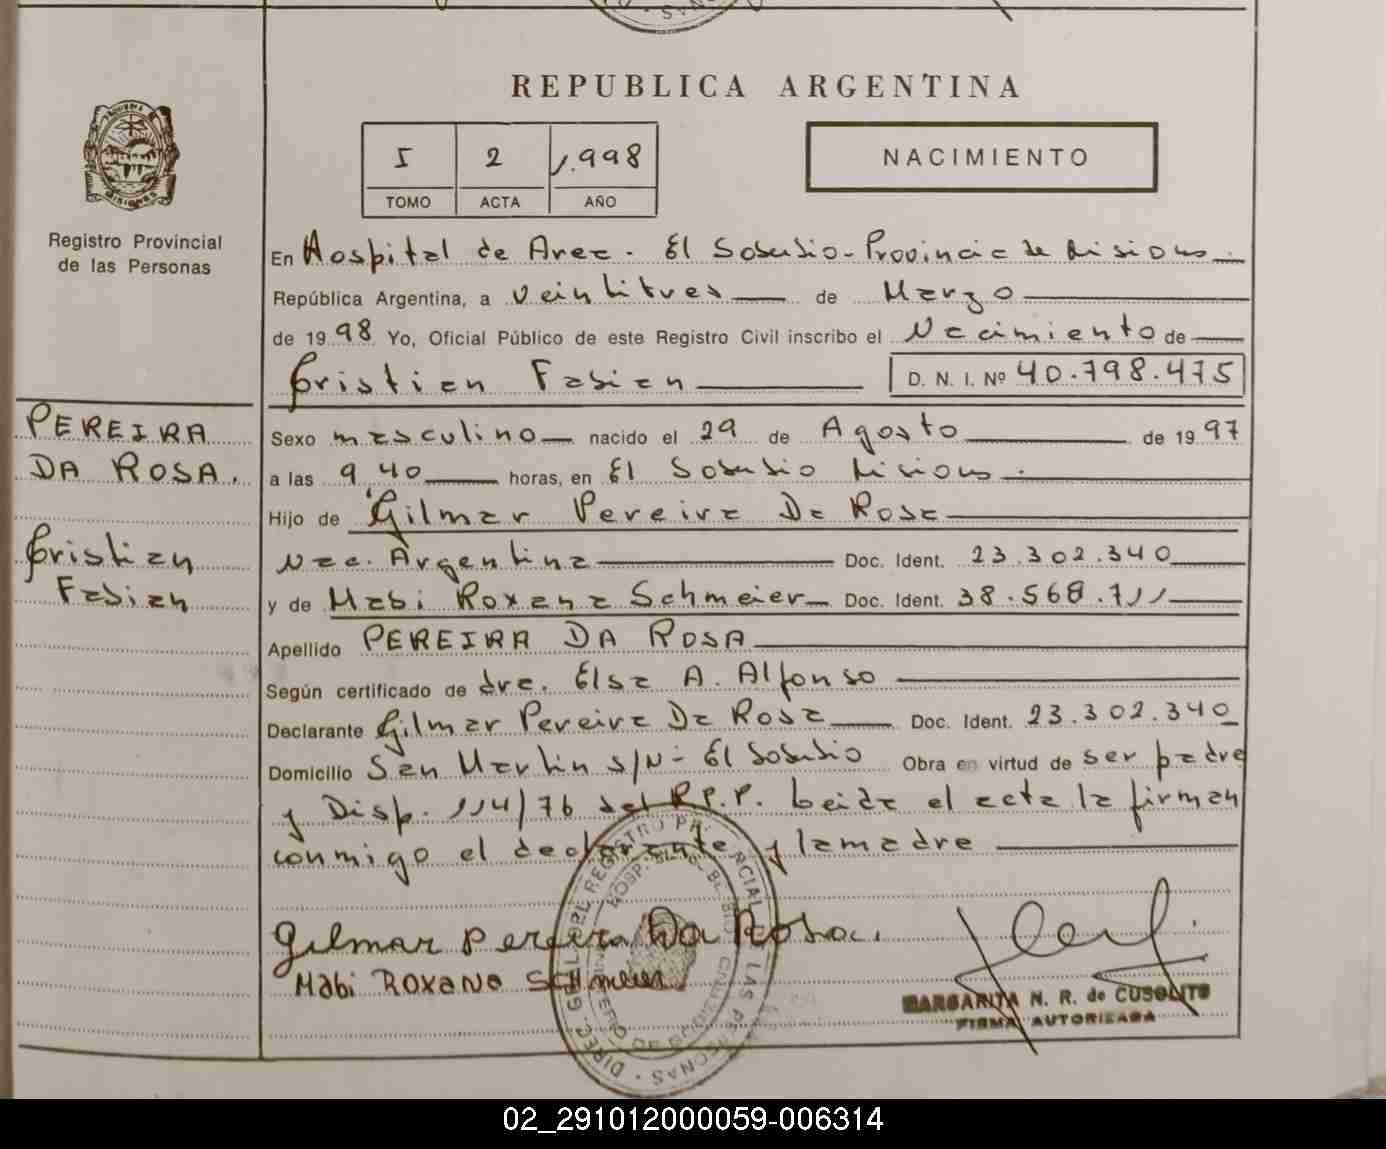 REPUBLICA ARGENTINA
I 2 1.998
TOMO ACTA AÑO
NACIMIENTO
Registro Provincial
de las Personas
En Hospital de Area. El Soberbio - Provincia de Misiones
República Argentina, a veintitres de Marzo
de 1998 Yo, Oficial Público de este Registro Civil inscribo el Nacimiento de
Cristian Fabian D. N. I. Nº 40.798.475
PEREIRA
DA ROSA.
Cristian
Fabian
Sexo masculino nacido el 29 de Agosto de 1997
a las 9,40 horas, en El Soberbio Misiones.
Hijo de Gilmar Pereira Da Rosa
Nac. Argentina Doc. Ident. 23.302.340
y de Mabi Roxana Schmeier Doc. Ident. 38.568.711
Apellido PEREIRA DA ROSA
Según certificado de dra. Elsa A. Alfonso
Declarante Gilmar Pereira Da Rosa Doc. Ident. 23.302.340
Domicilio San Martin s/N - El Soberbio Obra en virtud de ser padre
y Disp. 114/76 del R.P.P. Leida el acta la firman
conmigo el declarante y la madre
Gilmar Pereira Da Rosa.
Mabi Roxana Schmeier
MARGARITA N. R. de CUSOLITO
FIRMA AUTORIZADA
02_291012000059-006314